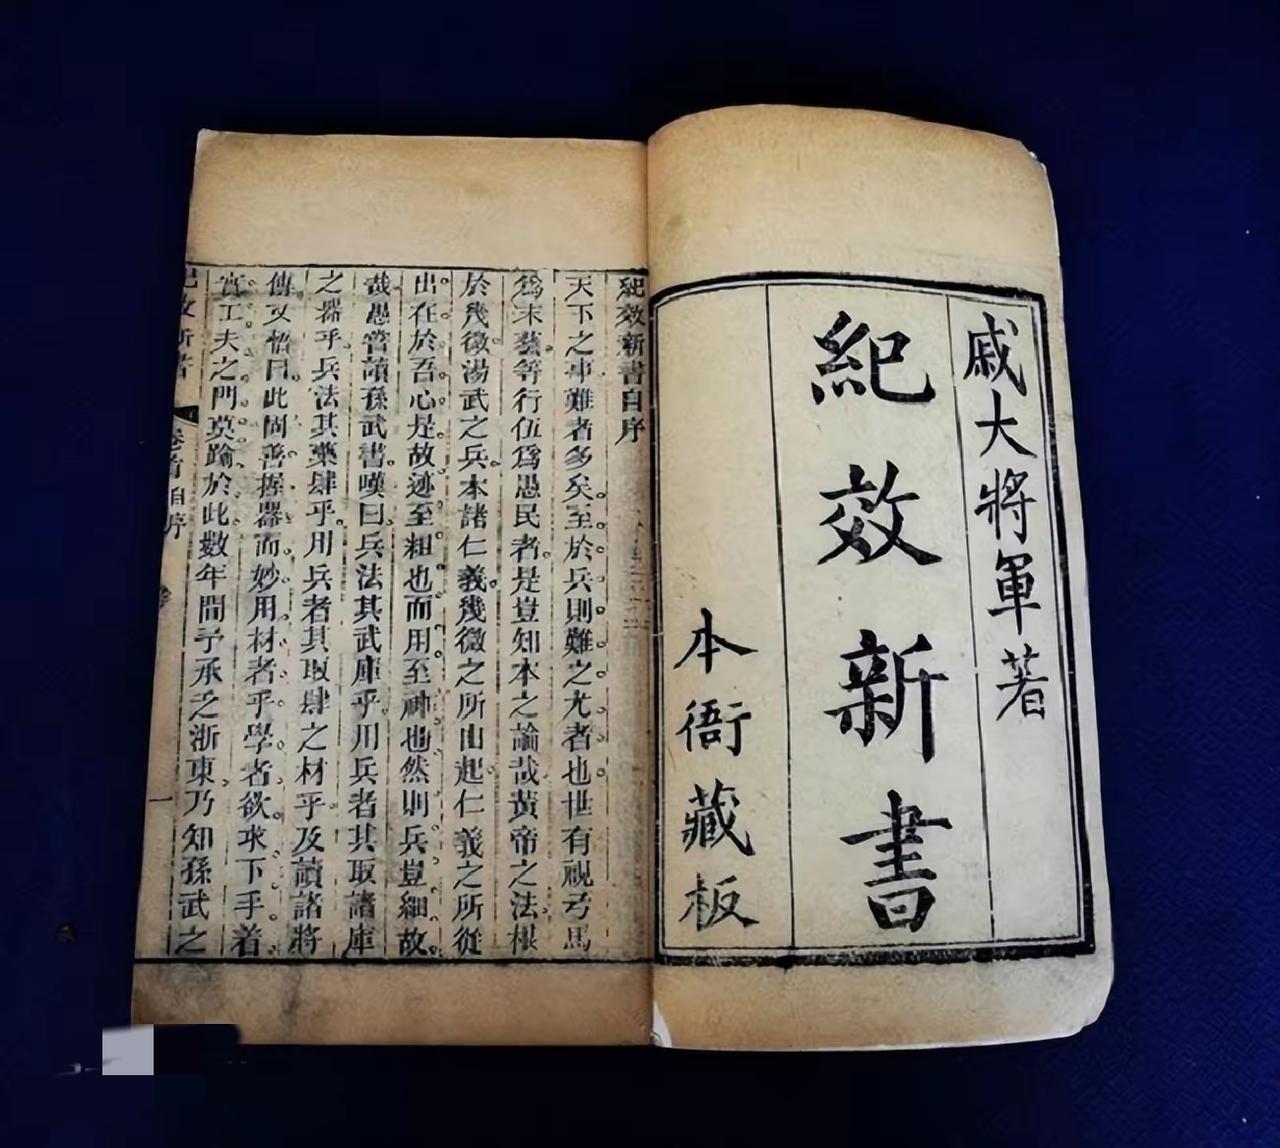 戚大將軍著
紀效新書
本衙藏板
紀效新書自序
天下之事難者多矣至於兵則難之尤者也世有視弓馬
爲末藝等行伍爲愚民者是豈知本之論哉黃帝之法根
於幾微湯武之兵本諸仁義幾微之所由起仁義之所從
出在於吾心是故迹至粗也而用至神也然則兵豈細故
哉愚嘗讀孫武書嘆曰兵法其武庫乎用兵者其取諸庫
之器乎兵法其藥肆乎用兵者其取肆之材乎及讀諸將
傳又悟曰此固善握器而妙用材者乎學者欲求下手着
實工夫之門莫踰於此數年間予承乏浙東乃知孫武之
紀效新書 卷首 自序 一